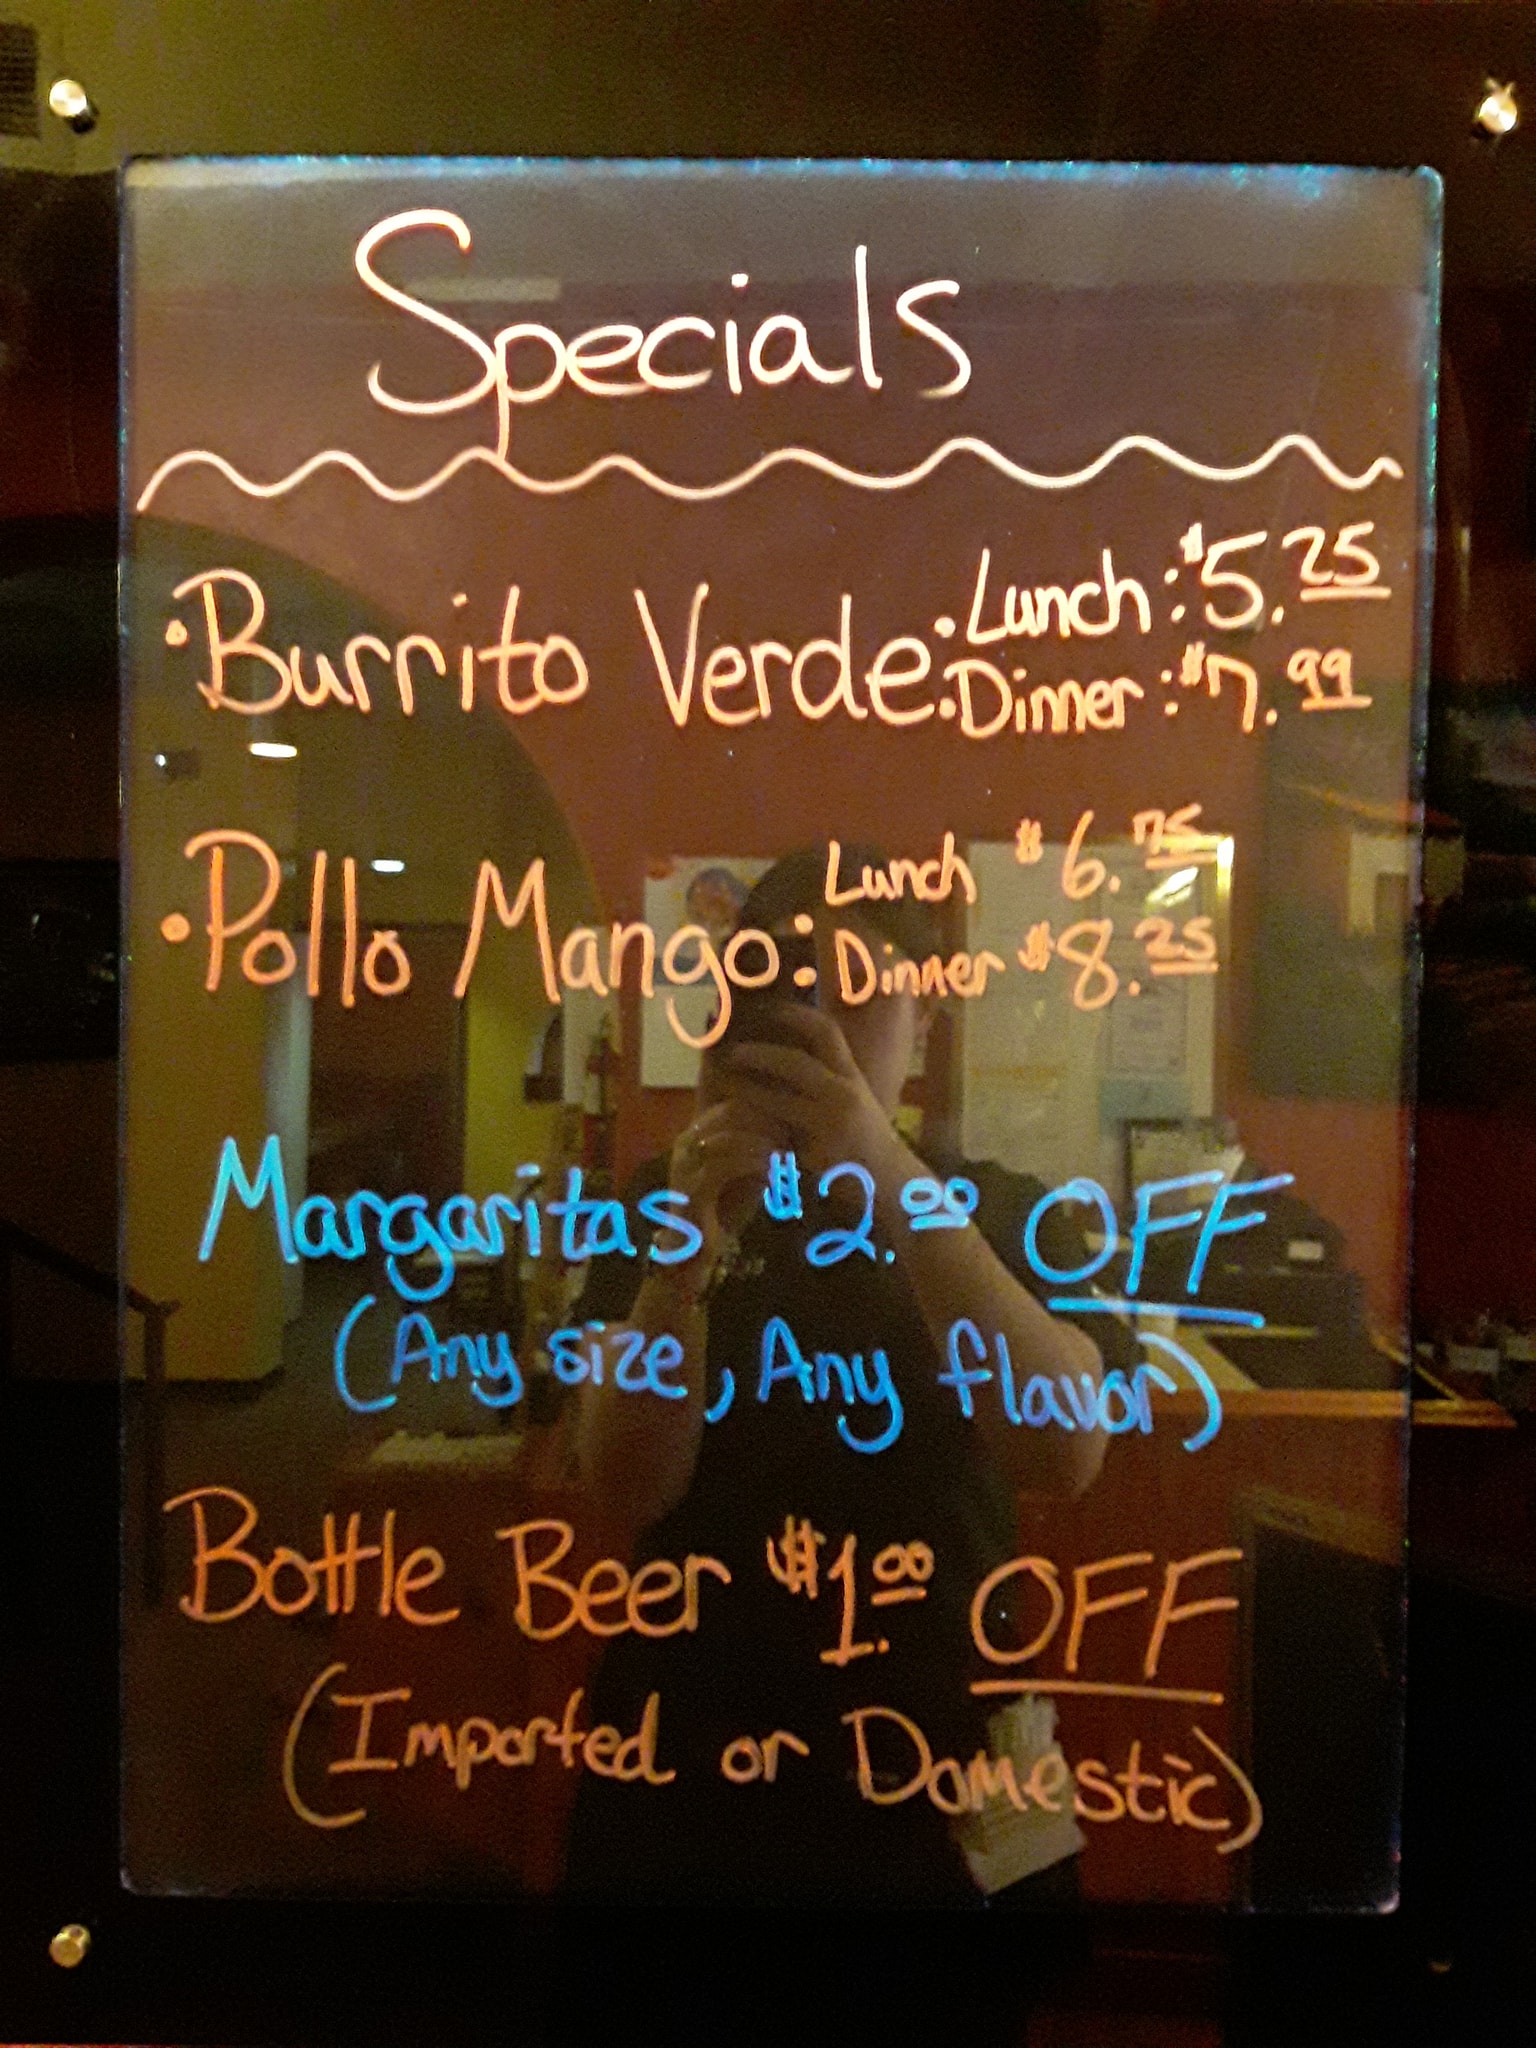 Specials
• Burrito Verde: Lunch: $5.25
Dinner: $7.99
• Pollo Mango: Lunch $6.75
Dinner $8.25
Margaritas $2.00 OFF
(Any size, Any flavor)
Bottle Beer $1.00 OFF
(Imported or Domestic)